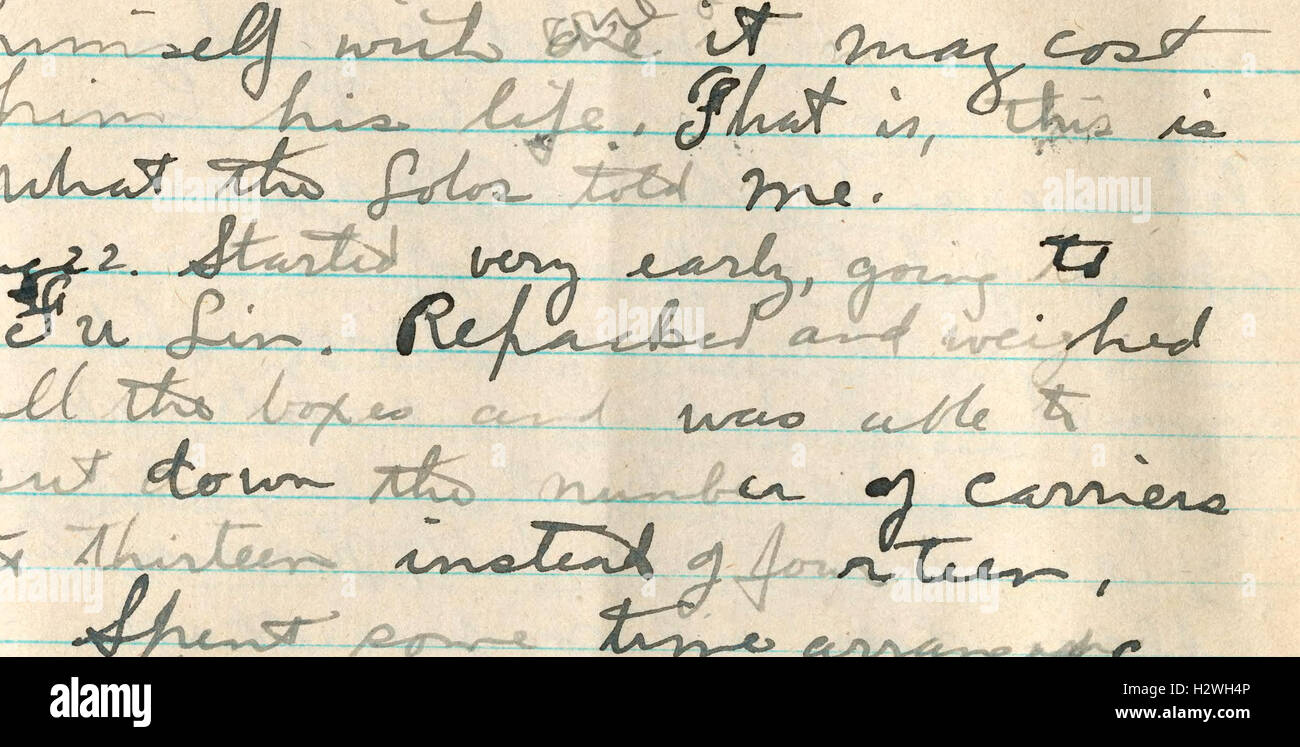 himself with one it may cost
him his life. That is, this is
what the Solos told me.
22. Started very early, going to
Fu Lin. Repacked and weighed
all the boxes and was able to
cut down the number of carriers
to thirteen instead of fourteen.
Spent some time arranging
alamy
alamy
Image ID: H2WH4P
www.alamy.com